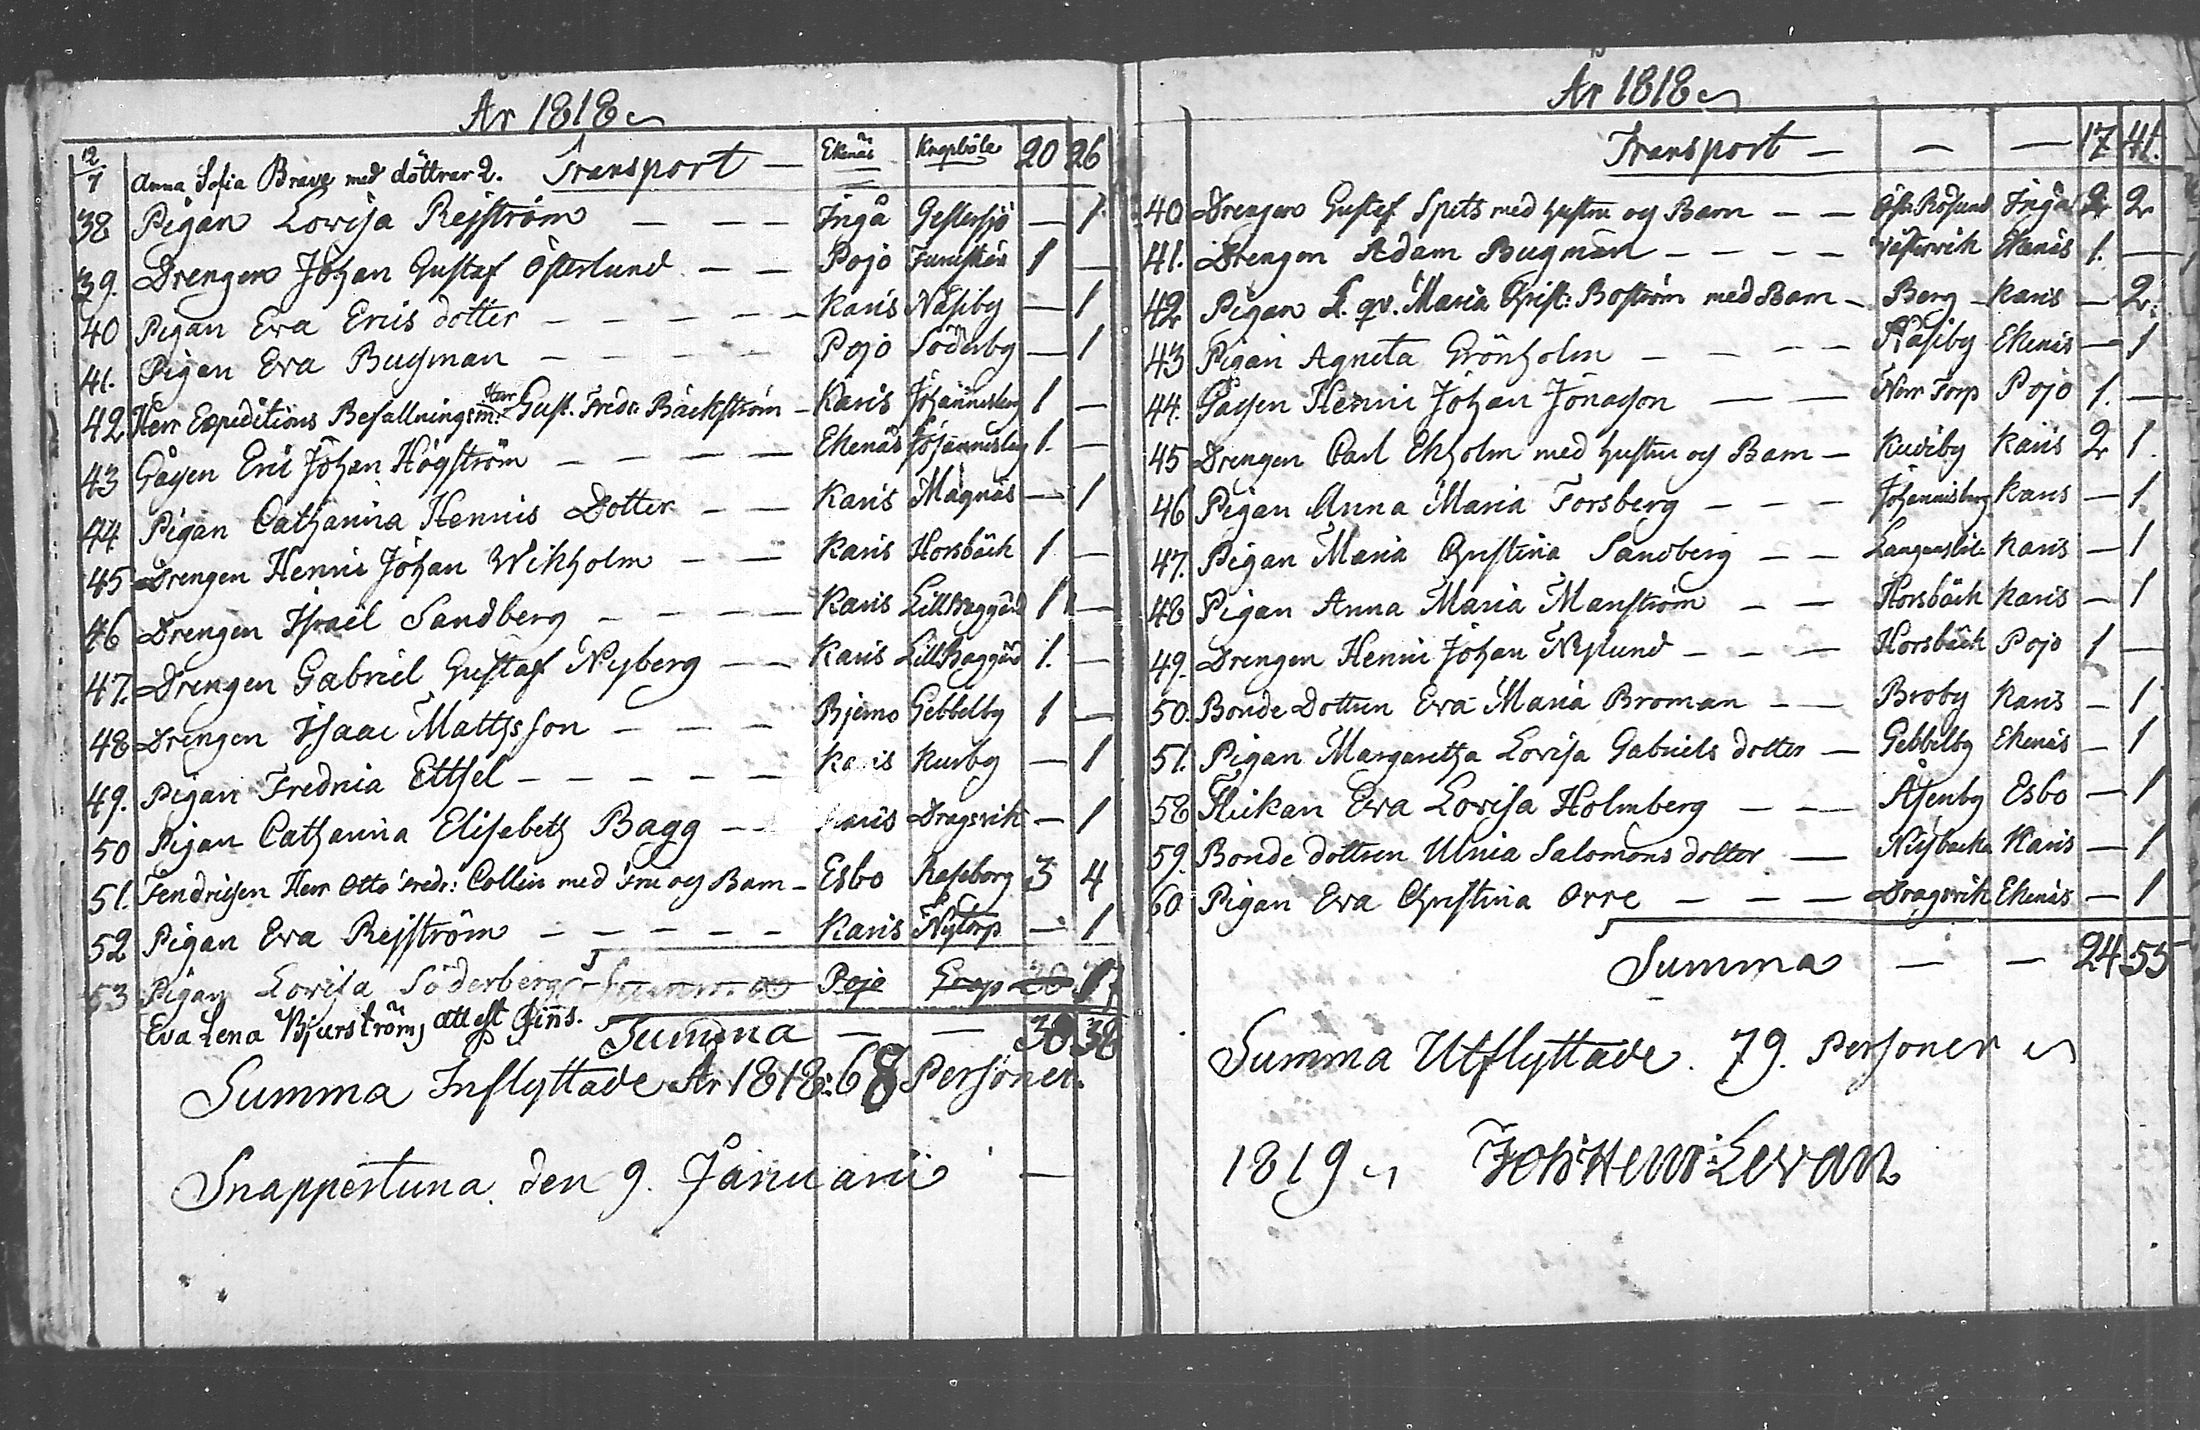 År 1818
12/1 Anna Sofia Brave med döttrar 2. Transport — Ekenäs Knopböle 20 26
38 Pigan Lovisa Rejström — — — Ingå Gestersjö — 1
39. Drengen Johan Gustaf Österlund — — Pojo 1 —
40 Pigan Eva Erics dotter — — — — — Karis Näsiby — 1
41. Pigan Eva Bugman — — — — Pojo Söderby — 1
42 Herr Expeditions Befallningsm: Herr Gust. Fredr: Bäckström — Karis Johannisberg 1 —
43 Gåssen Eric Johan Högström — — — — Ekenäs Johannisberg 1. —
44 Pigan Catharina Henrics Dotter — — Karis Magnäs — 1
45 Drengen Henric Johan Wikholm — — Karis Horsbäck 1 —
46 Drengen Israel Sandberg — — — — Karis LillBaggård 1 —
47. Drengen Gabriel Gustaf Nyberg — — Karis LillBaggård 1. —
48 Drengen Isaac Mathsson — — — Bjerno Gebbelby 1 —
49. Pigan Fredrica Ettsel — — — — — Karis Kuvby — 1
50 Pigan Catharina Elisabeth Bagg — Karis Dragsvik — 1
51. Fendricken Herr Otto Fredr: Collin med Fru och Barn — Esbo Raseborg 3 4
52 Pigan Eva Rejström — — — — — Karis Nytorp — 1
53 Pigan Lovisa Söderberg Summa Pojo 1
Eva Lena Bjurström, att est finns. Summa — — 30 38
Summa Inflyttade År 1818: 68 Personer.
Snappertuna den 9. Januarii —
År 1818
Transport — — — 17 41.
40 Drengen Gustaf Spets med hustru och Barn — — Öfr. Rösund Ingå 2 2
41. Drengen Adam Bugman — — — — Vestervik Ekenäs 1. —
42 Pigan L. qv. Maria Christ: Boström med Barn — Berg — Karis — 2.
43 Pigan Agneta Grönholm — — — — Näsiby Ekenäs — 1
44. Gåssen Henric Johan Jonasson — — Norr Torp Pojo 1. —
45 Drengen Carl Ekholm med hustru och Barn — Kudiby Karis 2 1.
46 Pigan Anna Maria Forsberg — — — Johannisberg Karis — 1
47. Pigan Maria Christina Sandberg — — Langansböle Karis — 1
48 Pigan Anna Maria Manström — — Horsbäck Karis — 1
49. Drengen Henric Johan Nylund — — — Horsbäck Pojo 1 —
50. Bonde Dottren Eva Maria Broman — — Broby Karis — 1
51. Pigan Margaretha Lovisa Gabriels dotter — Gebbelby Ekenäs — 1
58 Flickan Eva Lovisa Holmberg — — — Åsenby Esbo — 1
59. Bonde dottren Ulrica Salomons dotter — Nysbacka Karis — 1
60 Pigan Eva Christina Orre — — — Dragsvik Ekenäs — 1
Summa — — 24 55
Summa Utflyttade. 79. Personer
1819 Joh: Henr: Levan